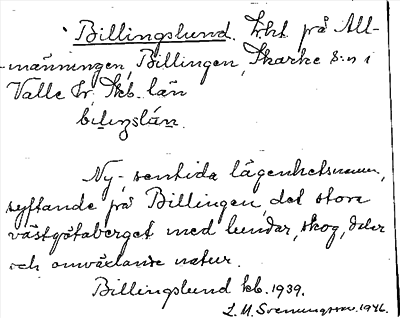 Billingslund. Lht. på All-
-männingen, Billingen, Skarke s:n i
Valle hr, Skb. län
biliŋslán.
Ny-, sentida lägenhetsnamn,
syftande på Billingen, det stora
västgötaberget med lundar, skog, dalar
och omväxlande natur.
Billingslund kb. 1939.
L. M. Svenungsson. 1946.